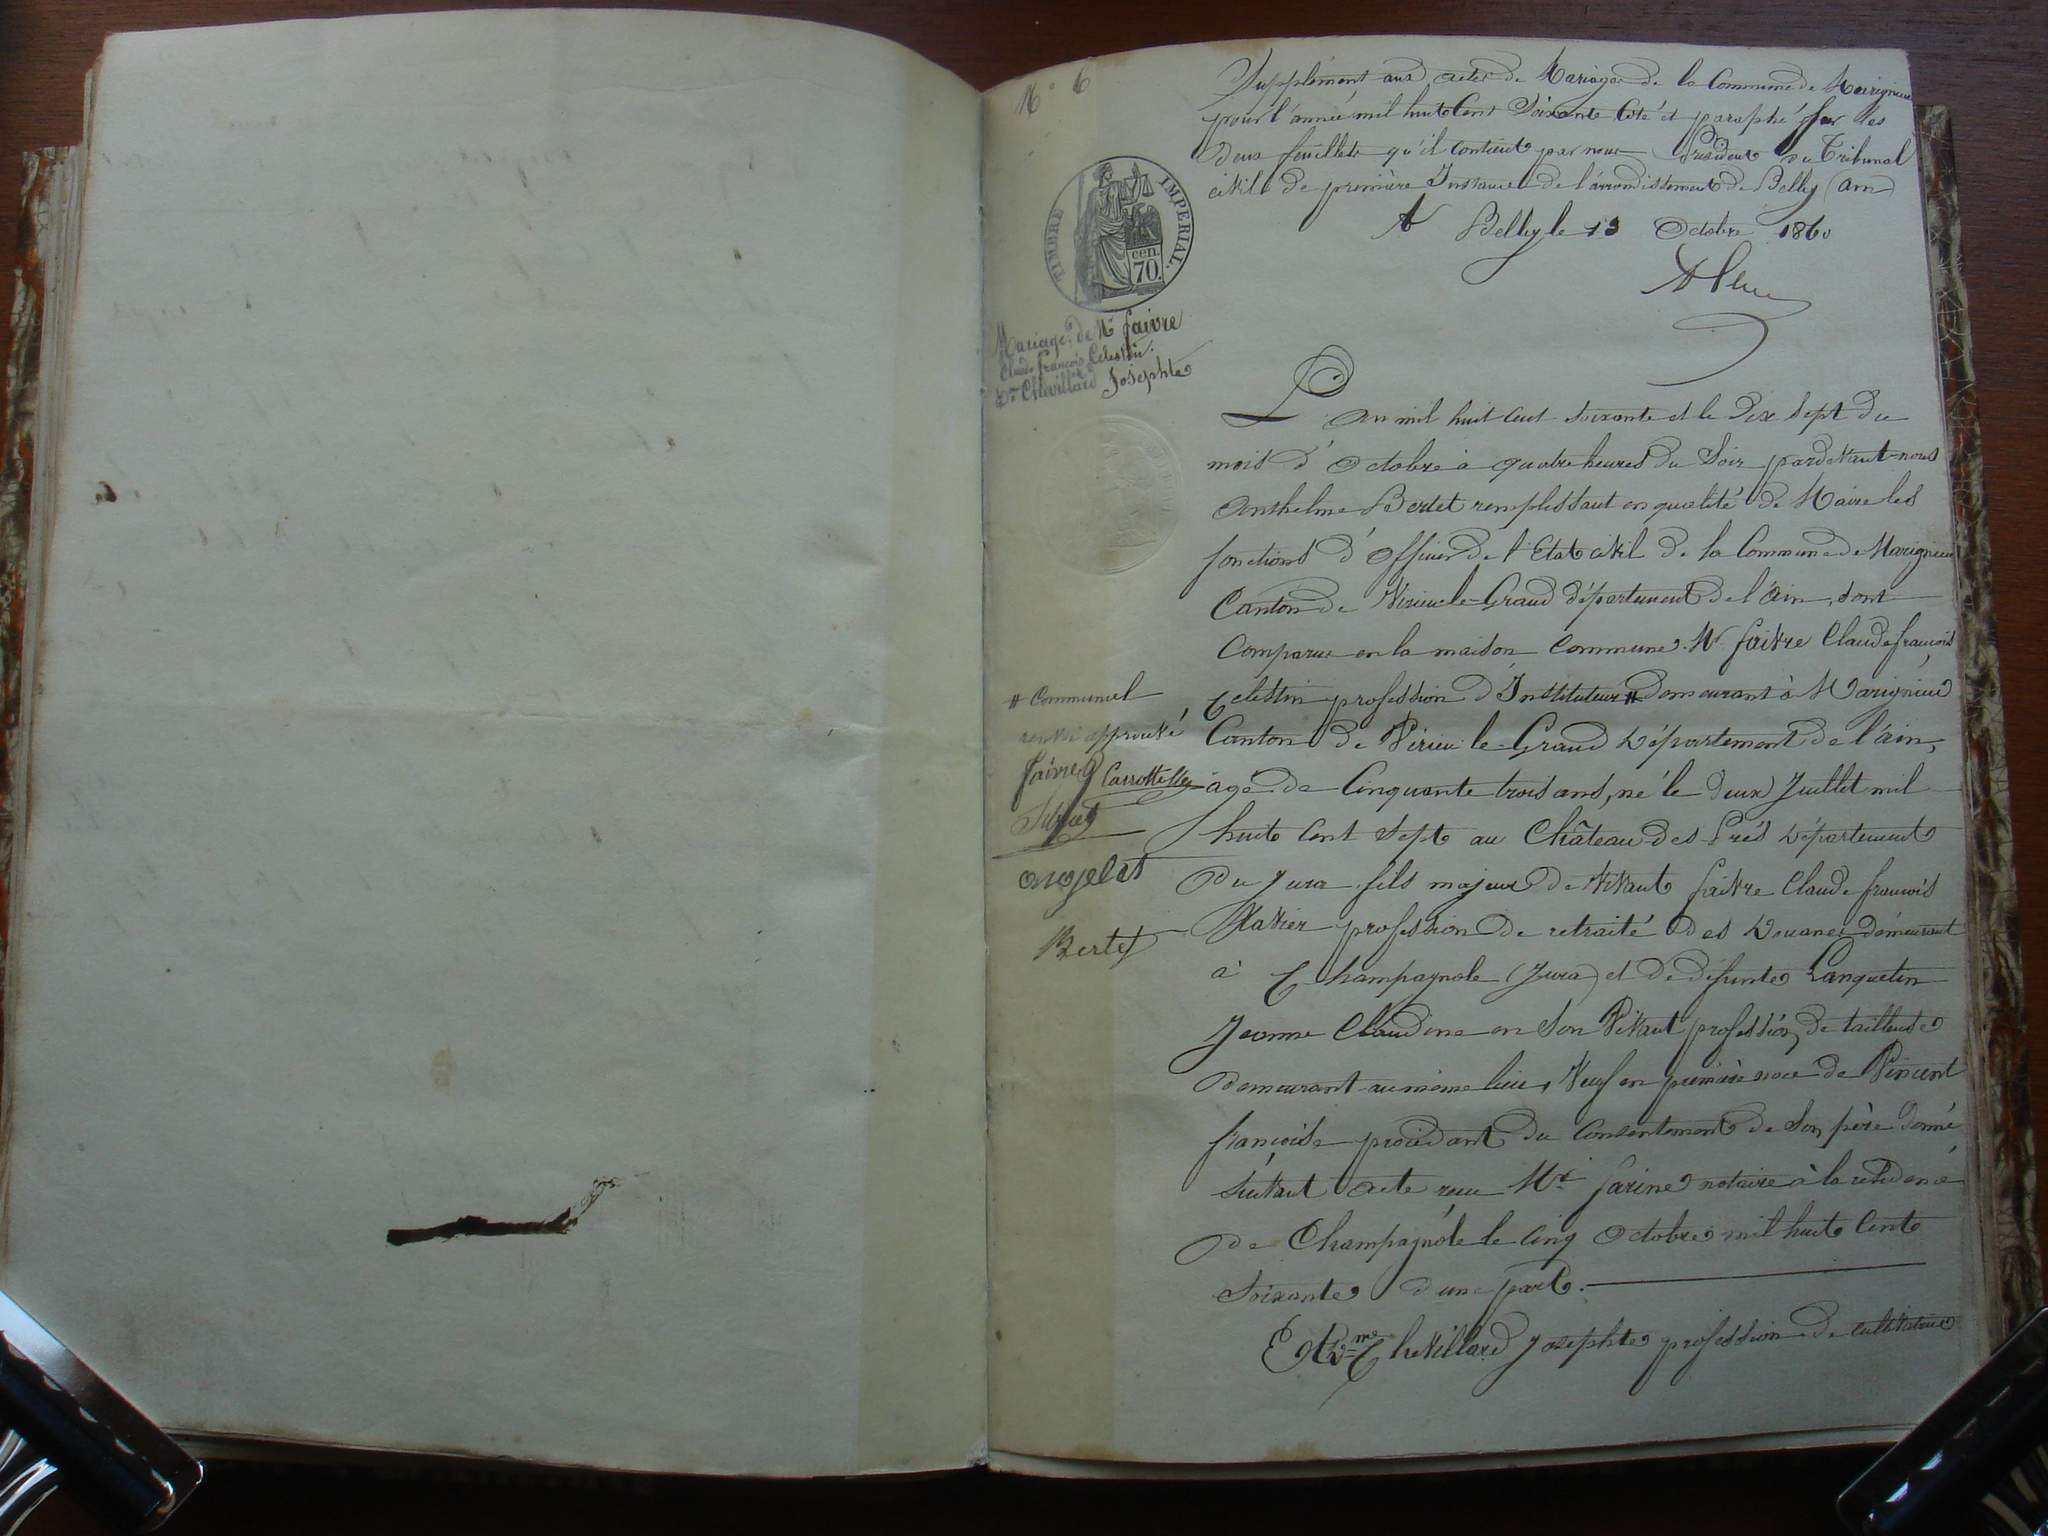 N° 6
Supplément aux actes de Mariages de la Commune de Marignieu
pour l'année mil huit Cent Soixante Coté et paraphé par les
deux feuillets qu'il contient par nous Président du Tribunal
civil de première Instance de l'arrondissement de Belley (ain)
A Belley le 13 Octobre 1860
TIMBRE IMPERIAL.
cen.
70.
Mariage de Mr faivre
Claude françois Célestin.
Chevillard Josephte
L'an mil huit cent soixante et le Dix Sept du
mois d'Octobre à quatre heures du Soir pardevant-nous
Anthelme Bertet remplissant en qualité de Maire les
fonctions d'officier de l'Etat civil de la Commune de Marignieu
Canton de Virieu-le-Grand département de l'ain, sont
Comparus en la maison Commune. Mr faivre Claude françois
Celestin profession d'Instituteur # demeurant à Marignieu
Canton de Virieu-le-Grand Département de l'ain,
âgé de Cinquante trois ans, né le deux Juillet mil
huit Cent Sept au Château des Prés Département
du Jura fils majeur de vivant faivre Claude françois
Xavier profession de retraité des Douanes demeurant
à Champagnole (Jura) et de défunte Lanquetin
Jeanne Claudine en Son Vivant profession de tailleuse
demeurant au même lieu, Veuf en première noce de Vincent
françoise procédant du Consentement de Son père donné
Suivant acte reçu Mre farine notaire à la résidence
de Champagnole le Cinq Octobre mil huit Cent
Soixante d'une part.
Et Dme Chevillard Josephte profession de cultivatrice
# Communal
renvoi approuvé
faivre Carrottelle
angelot
Bertet